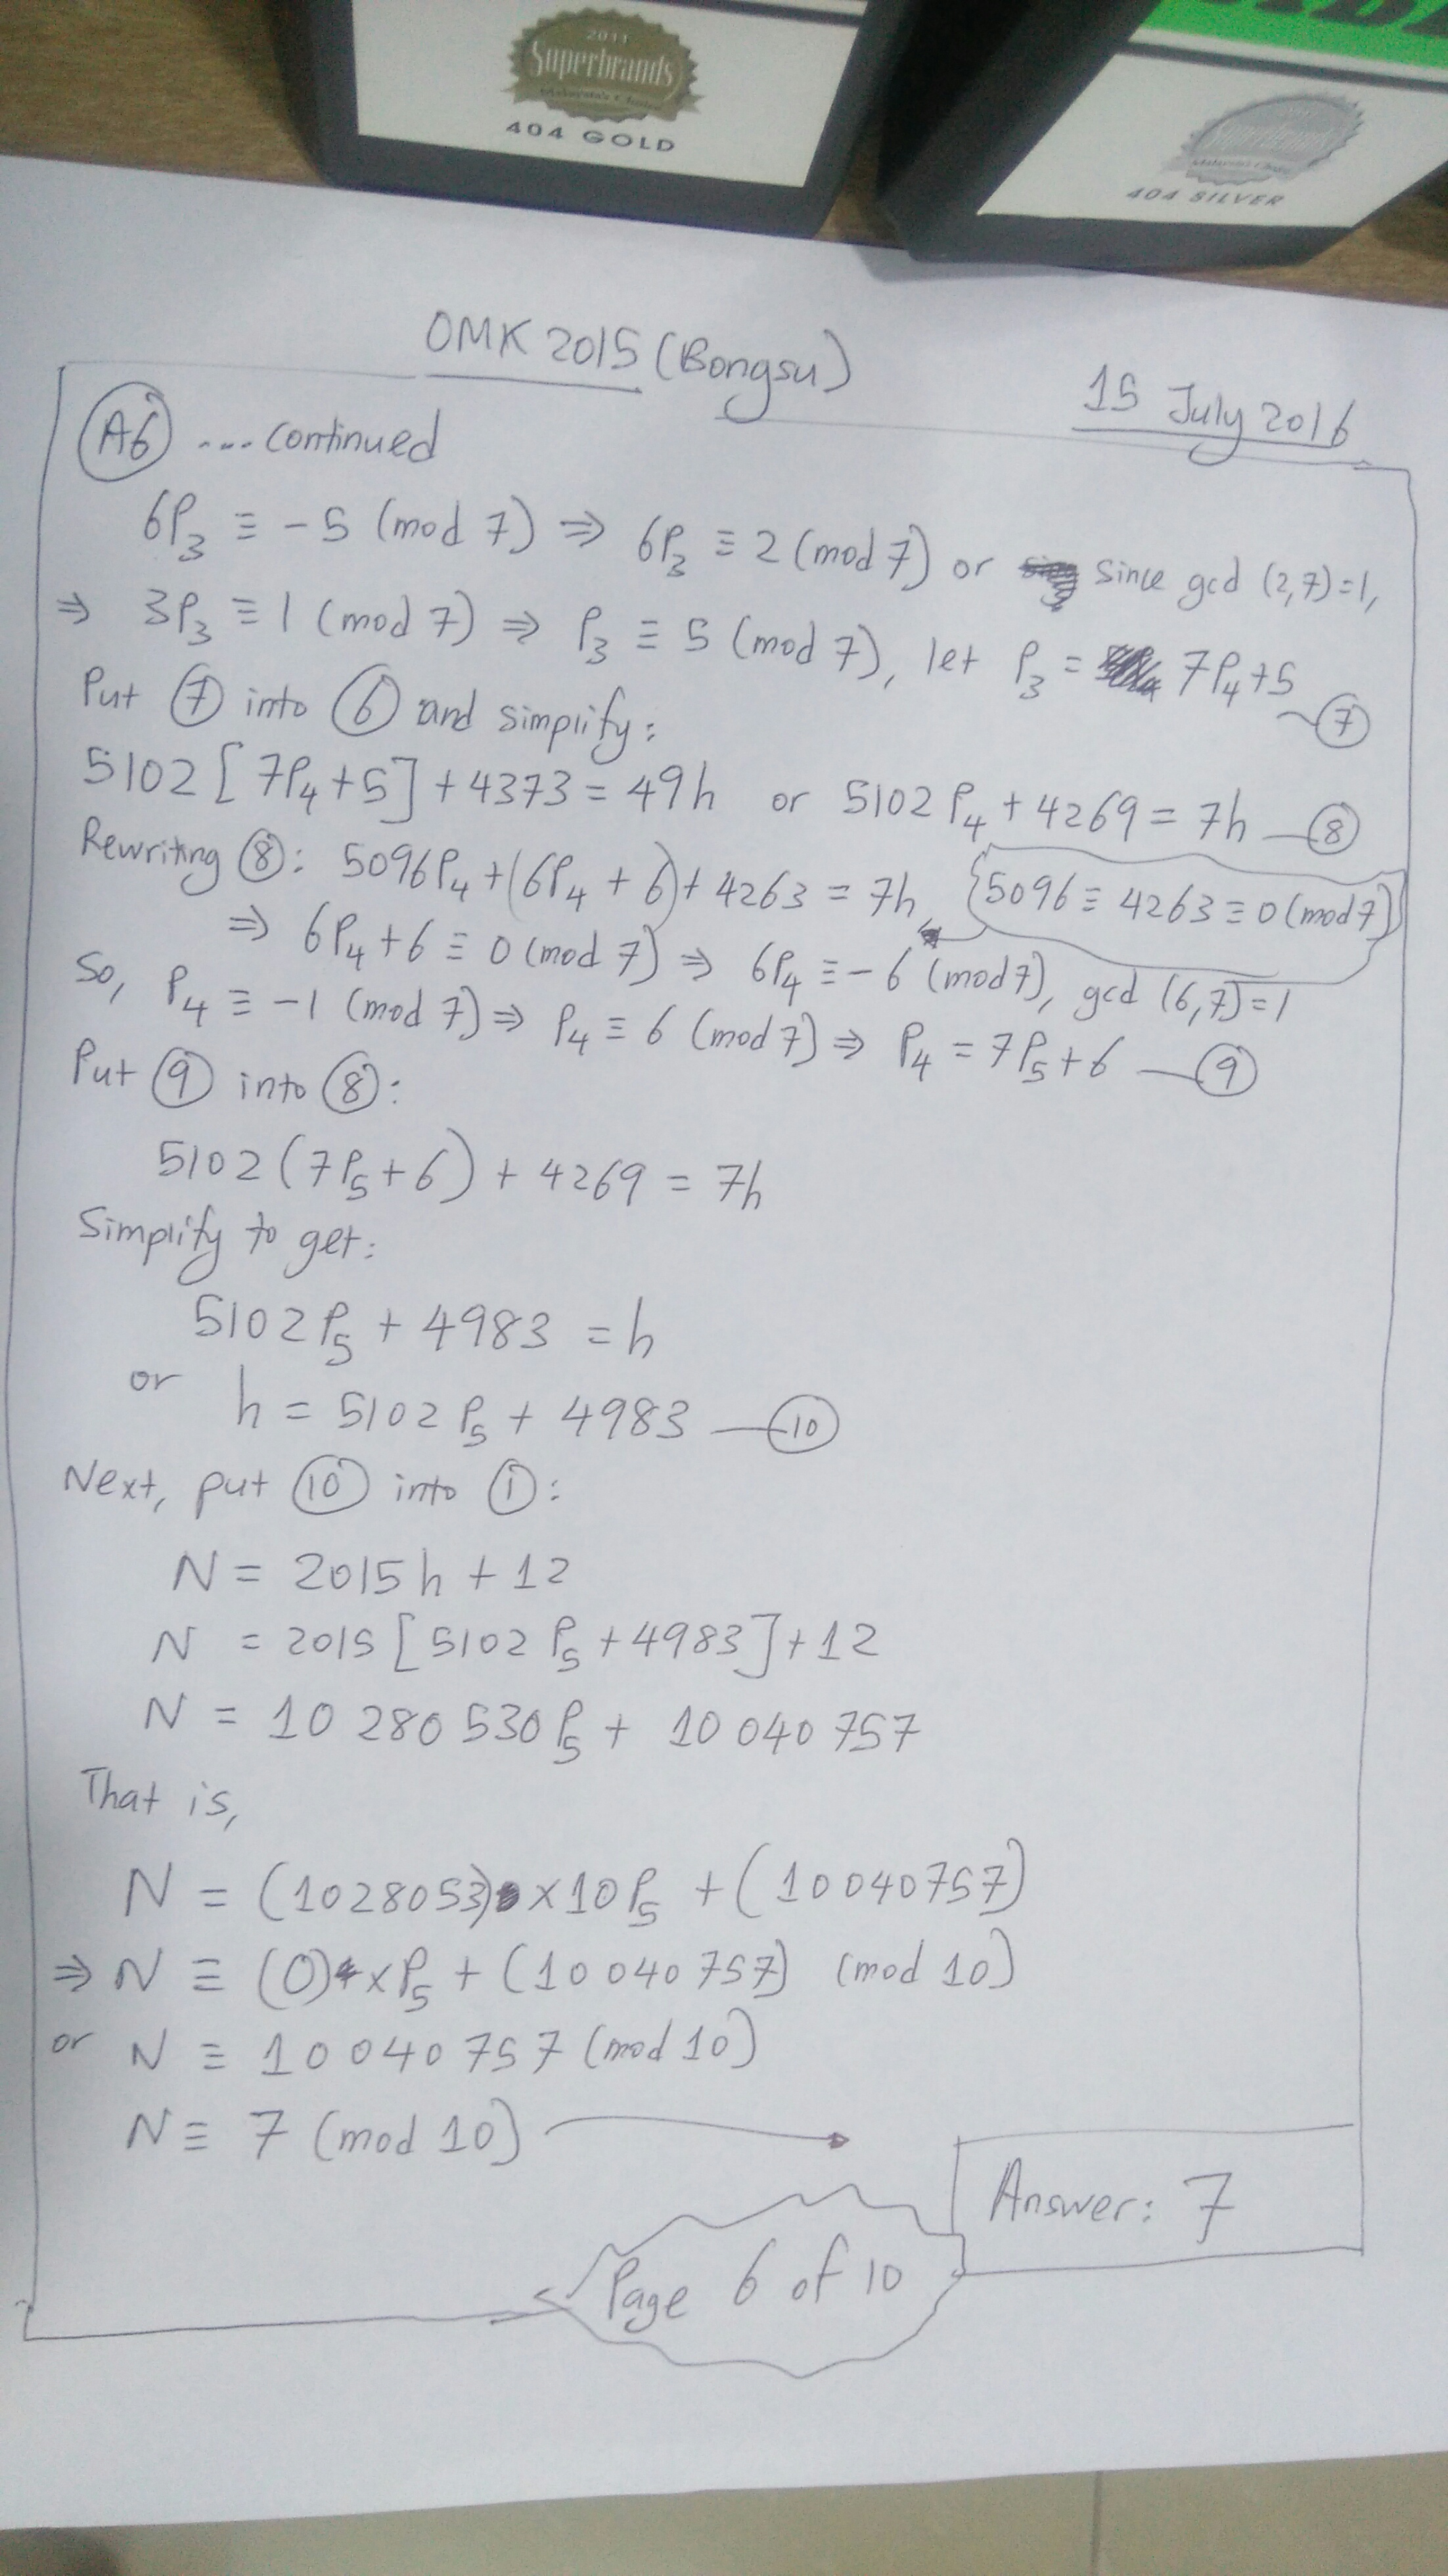 2011
Superbrands
Malaysia's Choice
404 GOLD
404 SILVER
OMK 2015 (Bongsu)
15 July 2016
A6 .... continued
6P₃ ≡ -5 (mod 7) ⇒ 6P₃ ≡ 2 (mod 7) or since gcd (2,7)=1,
⇒ 3P₃ ≡ 1 (mod 7) ⇒ P₃ ≡ 5 (mod 7), let P₃ = 7P₄+5 —⑦
Put ⑦ into ⑥ and simplify:
5102[7P₄+5]+4373=49h or 5102P₄+4269=7h —⑧
Rewriting ⑧: 5096P₄+(6P₄+6)+4263=7h, {5096≡4263≡0(mod 7)}
⇒ 6P₄+6 ≡ 0 (mod 7) ⇒ 6P₄ ≡ -6 (mod 7), gcd (6,7)=1
So, P₄ ≡ -1 (mod 7) ⇒ P₄ ≡ 6 (mod 7) ⇒ P₄ = 7P₅+6 —⑨
Put ⑨ into ⑧:
5102(7P₅+6) + 4269 = 7h
Simplify to get:
5102P₅ + 4983 = h
or h = 5102P₅ + 4983 —⑩
Next, put ⑩ into ①:
N = 2015h + 12
N = 2015[5102P₅+4983]+12
N = 10 280 530P₅ + 10 040 757
That is,
N = (1028053)×10P₅ + (10040757)
⇒ N ≡ (0)×P₅ + (10 040 757) (mod 10)
or N ≡ 10 040 757 (mod 10)
N ≡ 7 (mod 10)
Answer: 7
Page 6 of 10